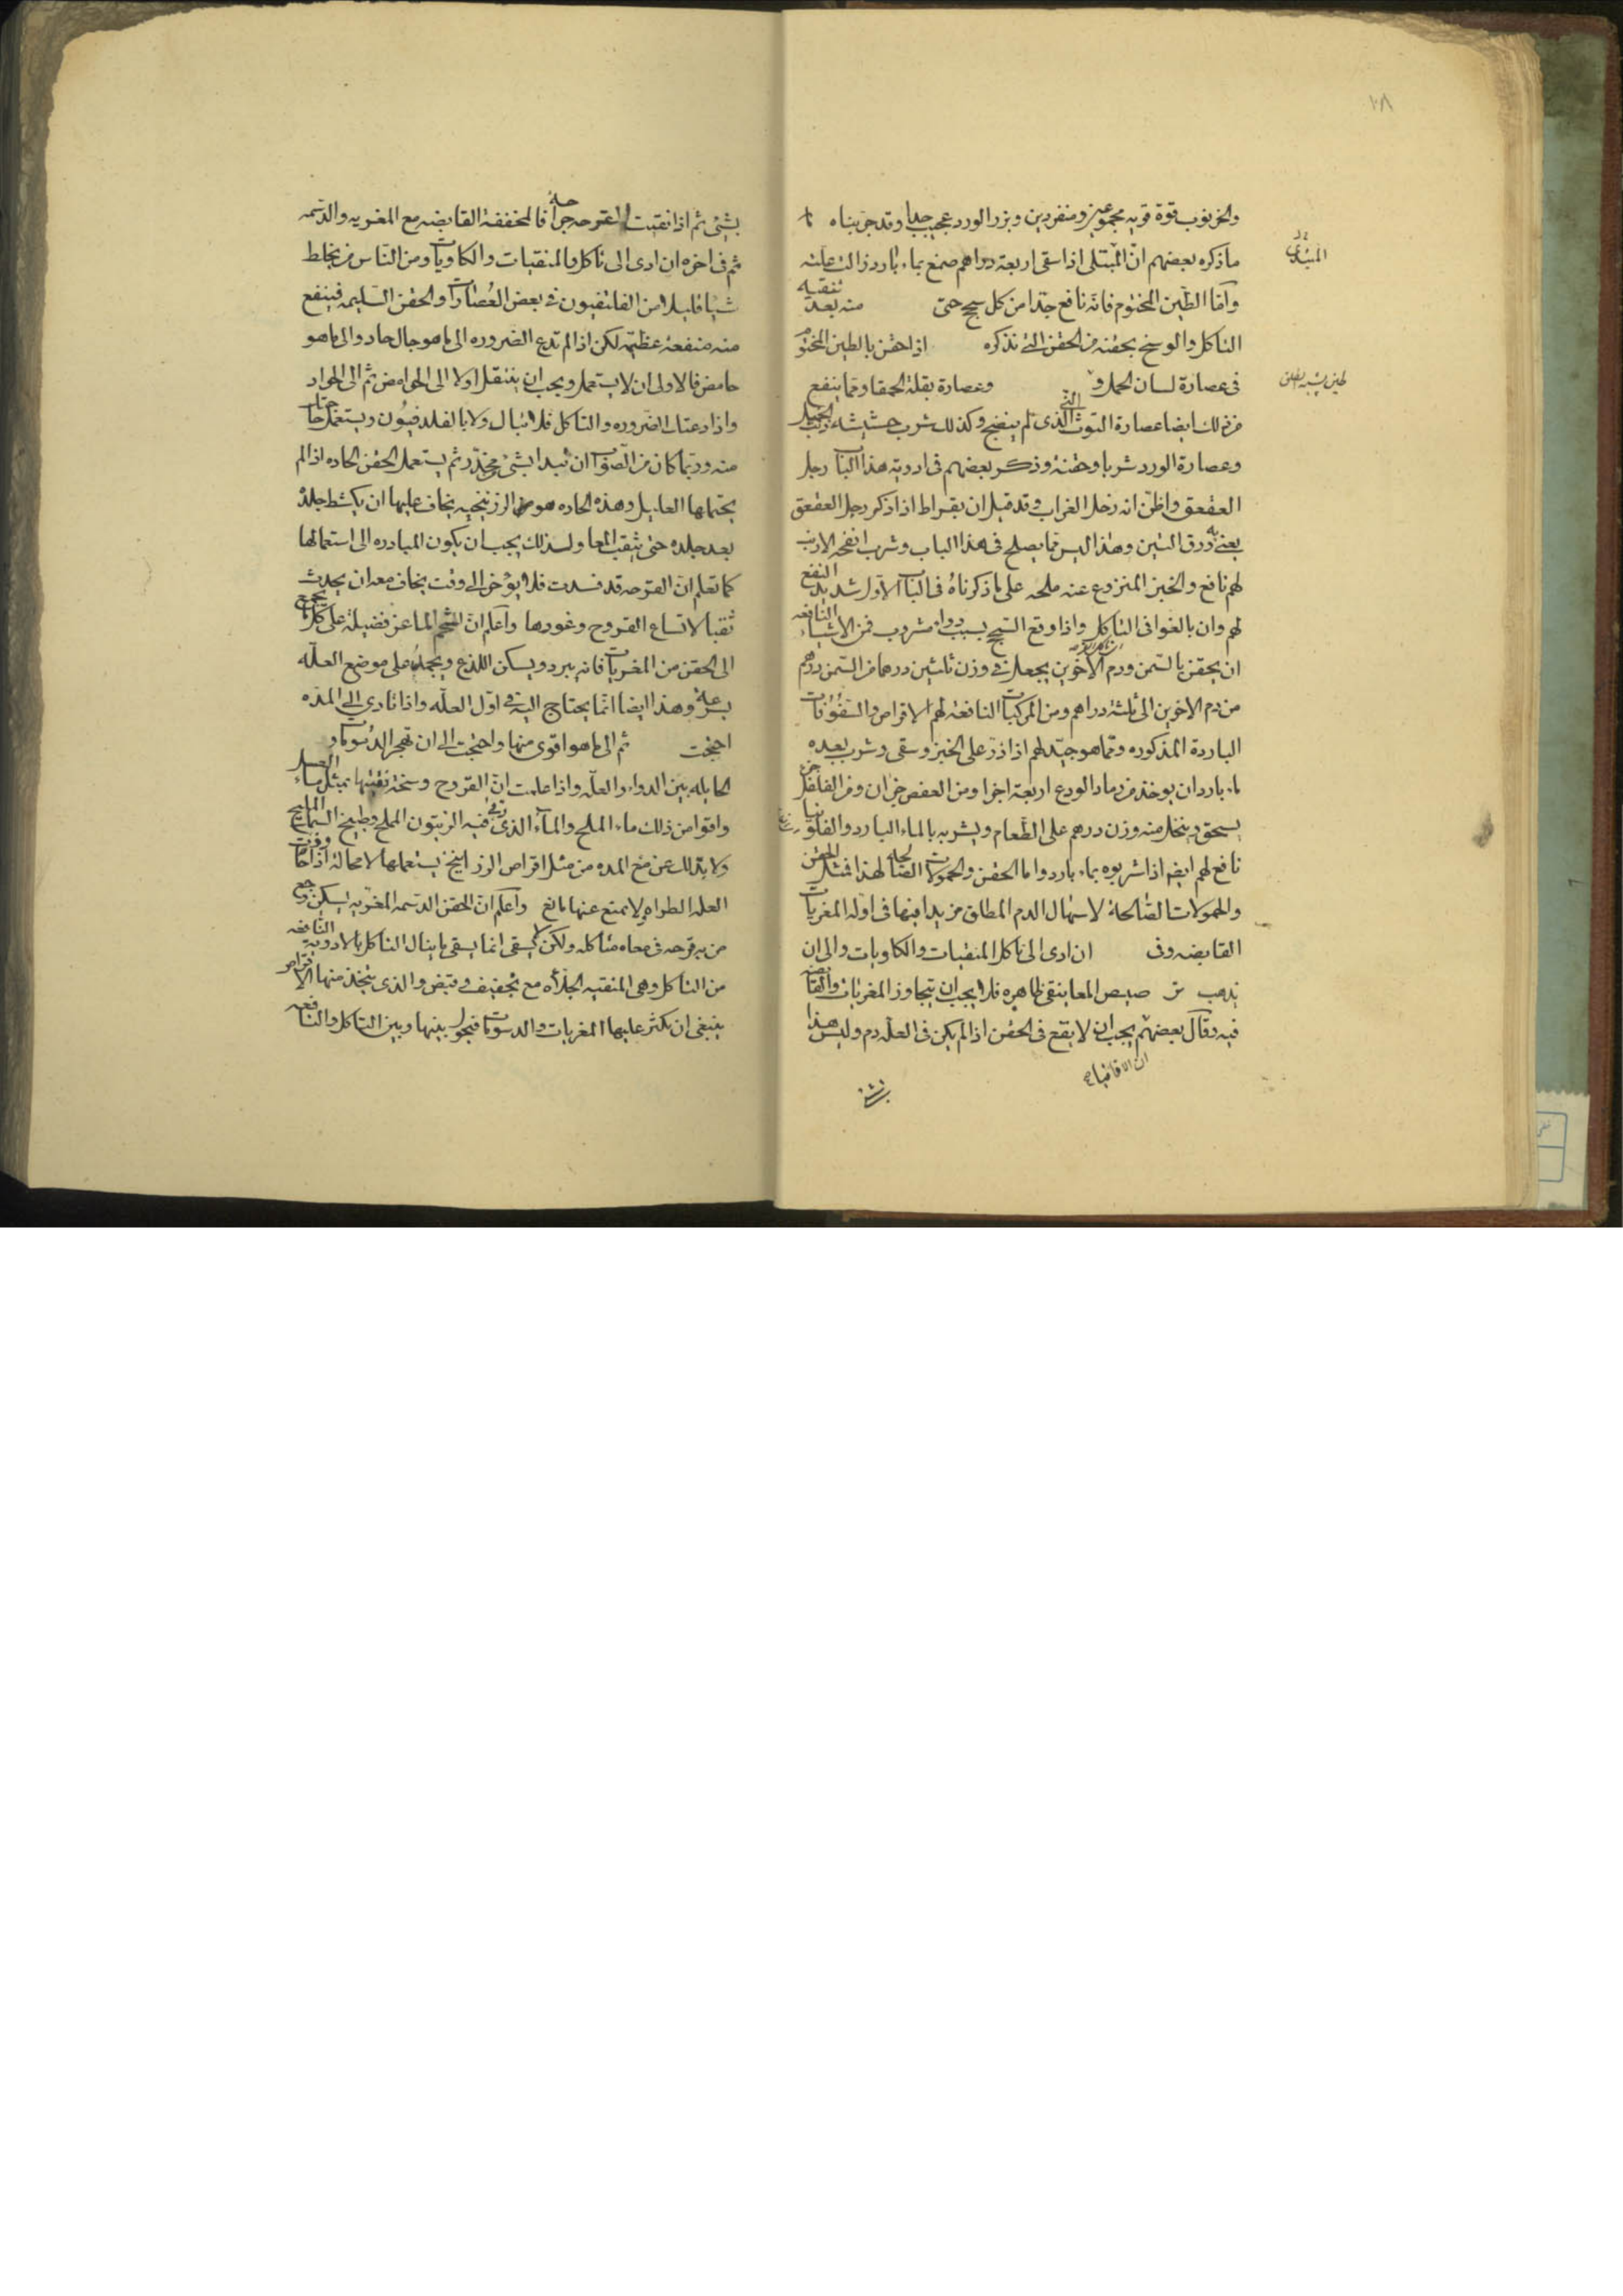 ١٠٨
والخرنوب قوة قويه مجموعين ومنفردين وبزر الورد عجيب جدا وقد جربناه
ما ذكره بعضهم ان المبتلى اذا سقى اربعة دراهم صمغ بماء بارد زالت علته
المبتدى
واما الطين المختوم فانه نافع جدا من كل سحج حتى منه بعد تنقيه
التاكل والوسخ بحقنه من الحقن التى نذكره اذا حقن بالطين المختوم
فى عصارة لسان الحمل و وعصارة بقلة الحمقا ومما ينفع
من ذلك ايضا عصارة التوث الذى لم ينضج وكذلك شرب حشيشة ذنب الخيل
وعصارة الورد شربا وحقنة وذكر بعضهم فى ادوية هذا الباب رجل
العقعق واظن انه رجل الغراب وقد قيل ان بقراط اذا ذكر رجل العقعق
يعنى به ورق التين وهذا ليس مما يصلح فى هذا الباب وشرب انفحه الارنب
لهم نافع والخبز المنزوع عنه ملحه على ما ذكرناه فى الباب الاول شديد النفع
لهم وان بالغوا فى التاكل واذا وقع السحج بسبب دواء مشروب فمن الاشياء النافعه
ان يحقن بالسمن ودم الاخوين يجعل فى وزن ثلثين درهما من السمن درهم
من دم الاخوين الى ثلثة دراهم ومن المركبات النافعة لهم الاقراص والسفوفات
الباردة المذكوره ومما هو جيد لهم اذا ذر على الخبز وسقى وشرب بعده
ماء بارد ان يوخذ من رماد الودع اربعة اجزا ومن العفص جزان ومن الفلفل جزء
يسحق وينخل منه وزن درهم على الطعام ويشربه بالماء البارد والفلونيا
نافع لهم ايضا اذا شربوه بماء بارد واما الحقن والحمولات الصالحه لهذا فمثل الحقن
والحمولات الصالحة لاسهال الدم المطلق من يبدا فيها فى اوله المغريات
القابضه وفى ان ادى الى تاكل المنقيات والكاويات والى ان
يذهب من صيص المعا ينقى ظاهره فلا يجب ان يتجاوز المغريات والقابضه
فيه وقال بعضهم يجب ان لا يقع فى الحقن اذا لم يكن فى العلة دم وليس هذا
ان الاقاقيا
بشئ ثم اذا نقيت القرحه جدا فالمخففة القابضه مع المغريه والدسمه
ثم فى اخره ان ادى الى تاكل فالمنقيات والكاويات ومن الناس من يخلط
شيا قليلا من الفلتفيون فى بعض العصارات والحقن السليمه فينفع
منه منفعة عظيمه لكن اذا لم تدع الضروره الى ما هو حال حاد والى ما هو
حامض فالاولى ان لا يستعمل ويجب ان ينتقل اولا الى الحوامض ثم الى الحواد
واذا دعتك الضروره والتاكل فلا تبال ولا بالفلدفيون ويستعمل
منه وربما كان من الصواب ان تبدا بشئ مخدر ثم يستعمل الحقن الحاده اذا لم
يحتملها العليل وهذه الحاده هو من الزرنيخيه يخاف عليها ان يكشط جلدة
بعد جلده حتى يثقب المعا ولذلك يجب ان يكون المبادره الى استعمالها
كما تعلم ان القرحه قد فسدت فلا يؤخر الى وقت يخاف معه ان يحدث
ثقبا لاتساع القروح وغورها واعلم ان لشحم الماعز فضيلة على كل ما يجمع
الى الحقن من المغريات فانه يبرد ويسكن اللذع ويجمد على موضع العله
بسرعة وهذا ايضا انما يحتاج اليه فى اول العله واذا تادى الى المده
احتجت ثم الى ما هو اقوى منها واحتجت الى ان تهجر الدسومات و
الحايله بين الدواء والعله واذا علمت ان القروح وسخة نقيتها بمثل ماء العسل
واقوا من ذلك ماء الملح والماء الذى فيه الزيتون المملح وطبيخ السمك المليح
ولا بد لك عن منع المده من مثل اقراص الزرانيخ يستعملها لا محالة اذا
العله الطراوه ولا تمنع عنها مانع واعلم ان الحقن الدسمه المغريه يسكن وجع
من به قرحه فى معاه متاكله ولكن لا يشفى انما يشفى ما ينال التاكل بالادويه النافعه
من التاكل وهى المنقيه الجلاءه مع تجفيف وقبض والذى يتخذ منها الاقراص
ينبغى ان تكثر عليها المغريات والدسومات فتحول بينها وبين التاكل والنافعه